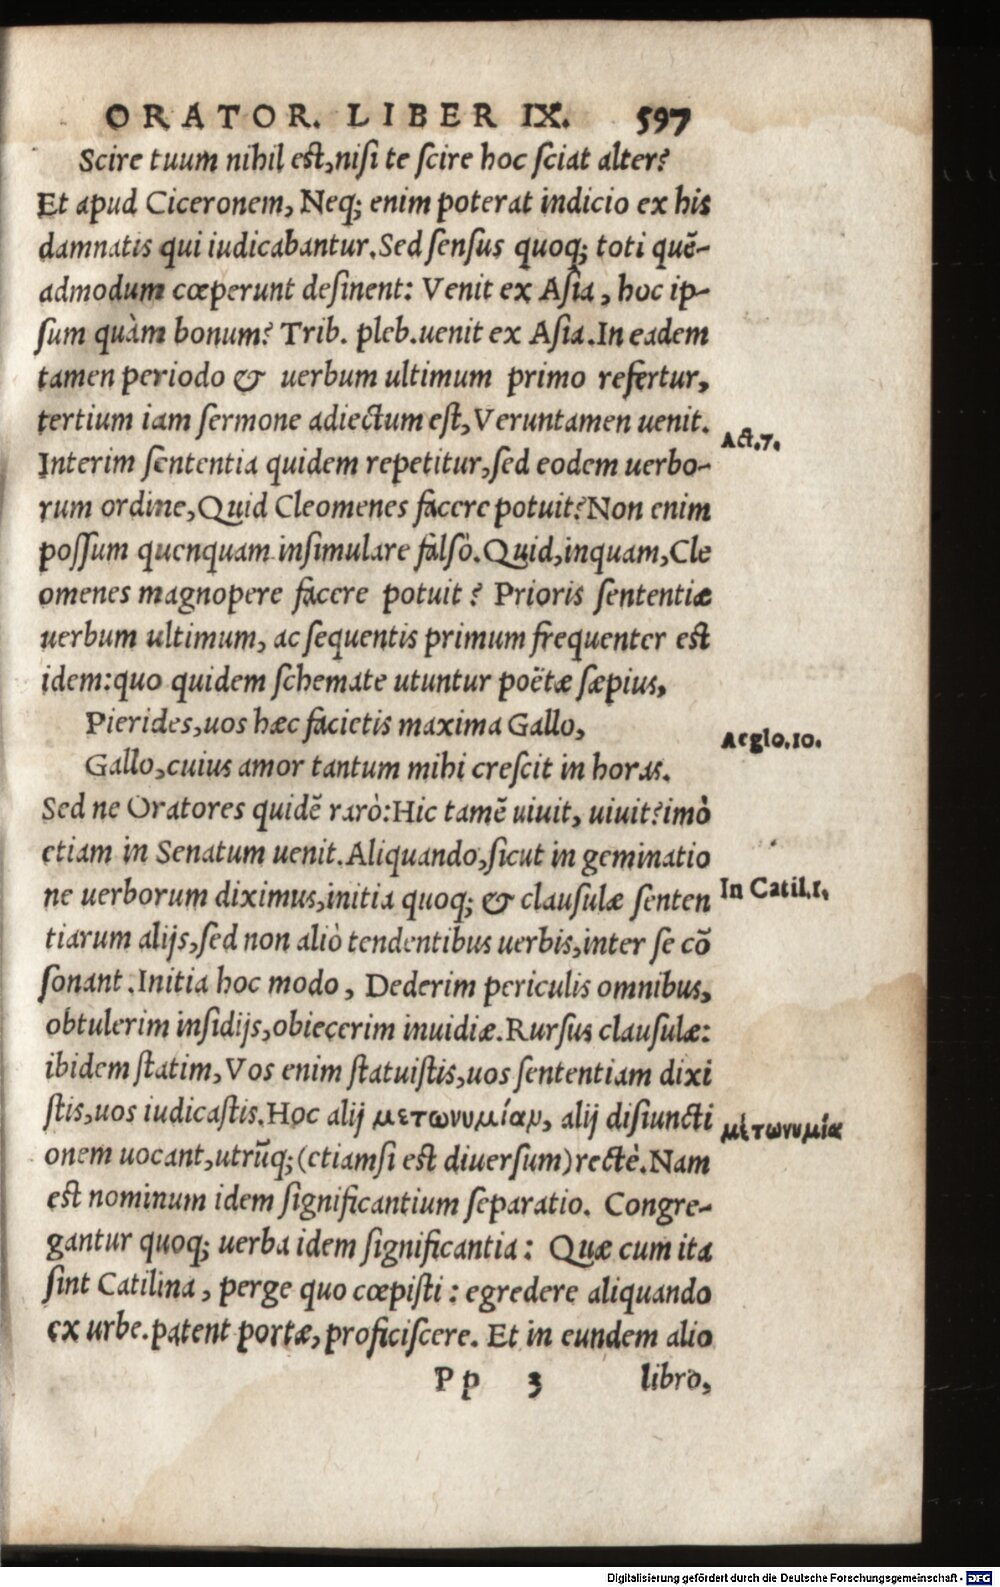 ORATOR. LIBER IX. 597
Scire tuum nihil est, nisi te scire hoc sciat alter?
Et apud Ciceronem, Neq; enim poterat indicio ex his
damnatis qui iudicabantur. Sed sensus quoq; toti quē-
admodum cœperunt desinent: Venit ex Asia, hoc ip-
sum quàm bonum? Trib. pleb. uenit ex Asia. In eadem
tamen periodo & uerbum ultimum primo refertur,
tertium iam sermone adiectum est, Veruntamen uenit.
Act.7.
Interim sententia quidem repetitur, sed eodem uerbo-
rum ordine, Quid Cleomenes facere potuit? Non enim
possum quenquam insimulare falsò. Quid, inquam, Cle
omenes magnopere facere potuit? Prioris sententiæ
uerbum ultimum, ac sequentis primum frequenter est
idem: quo quidem schemate utuntur poëtæ sæpius,
Pierides, uos hæc facietis maxima Gallo,
Aeglo.10.
Gallo, cuius amor tantum mihi crescit in horas.
Sed ne Oratores quidē rarò: Hic tamē uiuit, uiuit? imò
etiam in Senatum uenit. Aliquando, sicut in geminatio
ne uerborum diximus, initia quoq; & clausulæ senten
In Catil.1.
tiarum alijs, sed non aliò tendentibus uerbis, inter se cō
sonant. Initia hoc modo, Dederim periculis omnibus,
obtulerim insidijs, obiecerim inuidiæ. Rursus clausulæ:
ibidem statim, Vos enim statuistis, uos sententiam dixi
stis, uos iudicastis. Hoc alij μετωνυμίαν, alij disiuncti
μετωνυμία
onem uocant, utrūq; (etiamsi est diuersum) rectè. Nam
est nominum idem significantium separatio. Congre-
gantur quoq; uerba idem significantia: Quæ cum ita
sint Catilina, perge quo cœpisti: egredere aliquando
ex urbe. patent portæ, proficiscere. Et in eundem alio
Pp 3 libro,
Digitalisierung gefördert durch die Deutsche Forschungsgemeinschaft - DFG